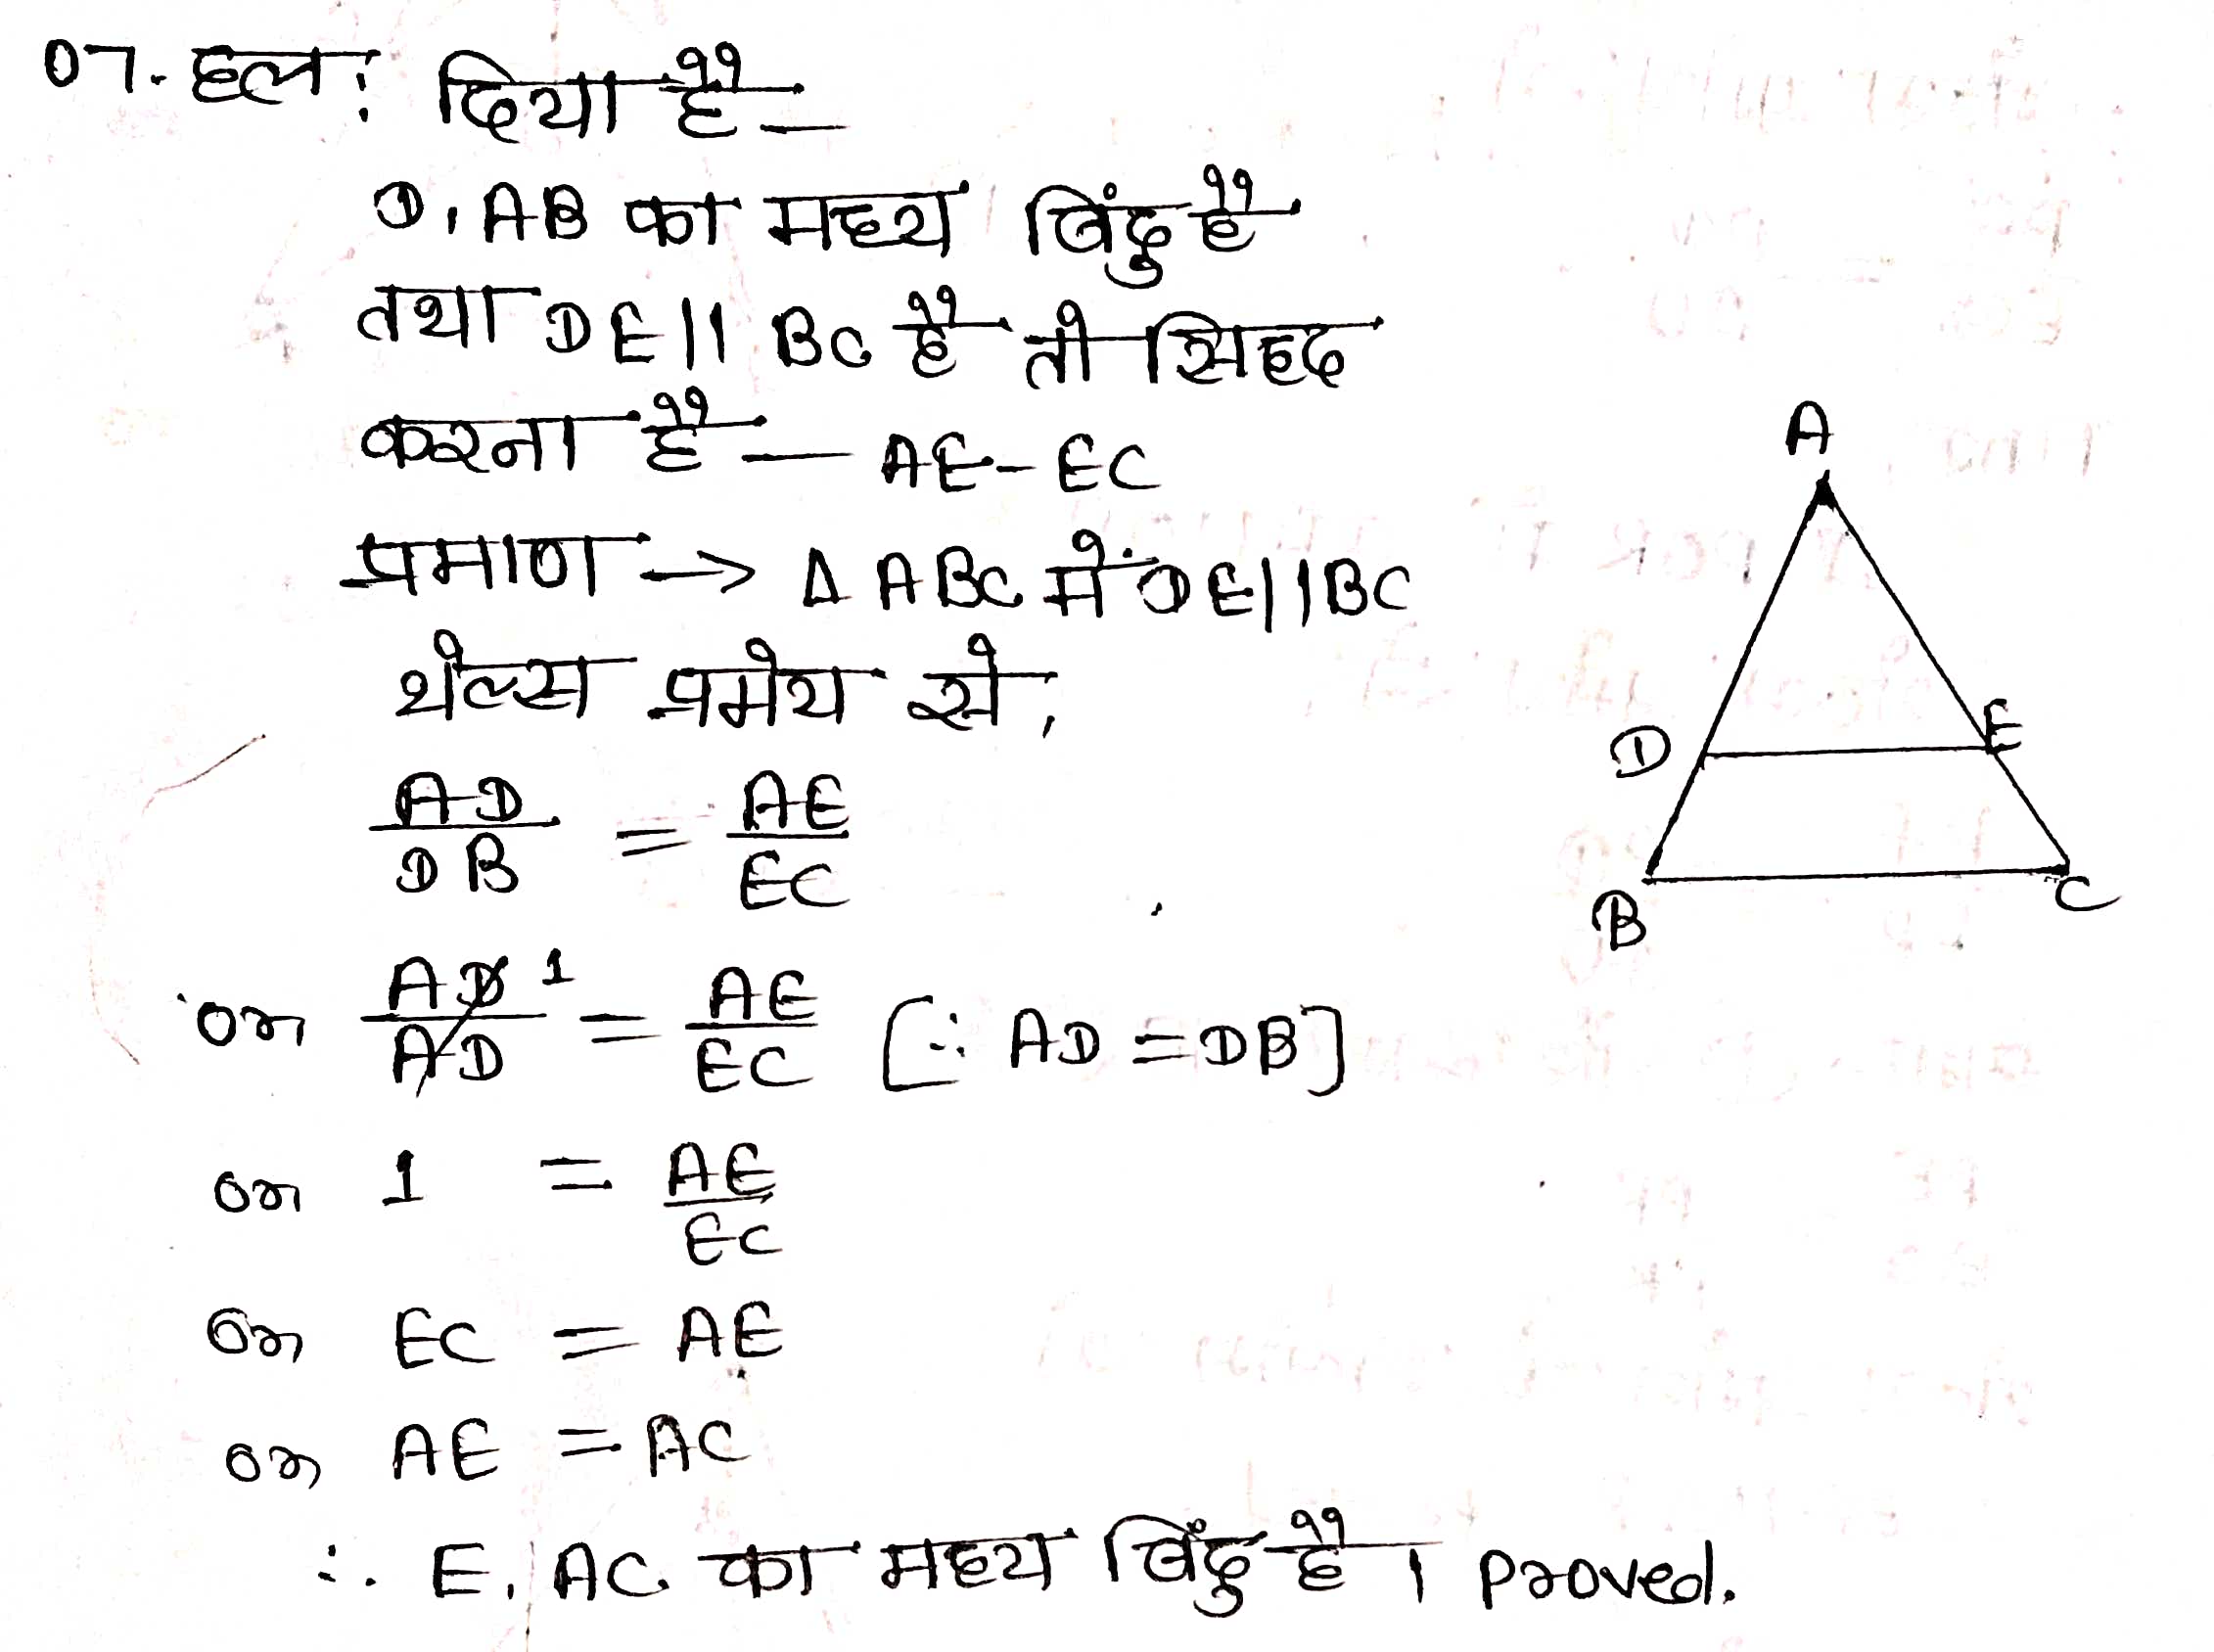 07. हल: दिया है —
D, AB का मध्य बिंदु है
तथा DE || BC है तो सिद्द
करना है — AE - EC
प्रमाण → Δ ABC में DE||BC
थेल्स प्रमेय से,
AD/DB = AE/EC
or AD/AD 1 = AE/EC [∵ AD = DB]
or 1 = AE/EC
or EC = AE
or AE = AC
∴ E, AC का मध्य बिंदु है। Proved.
A
D E
B C